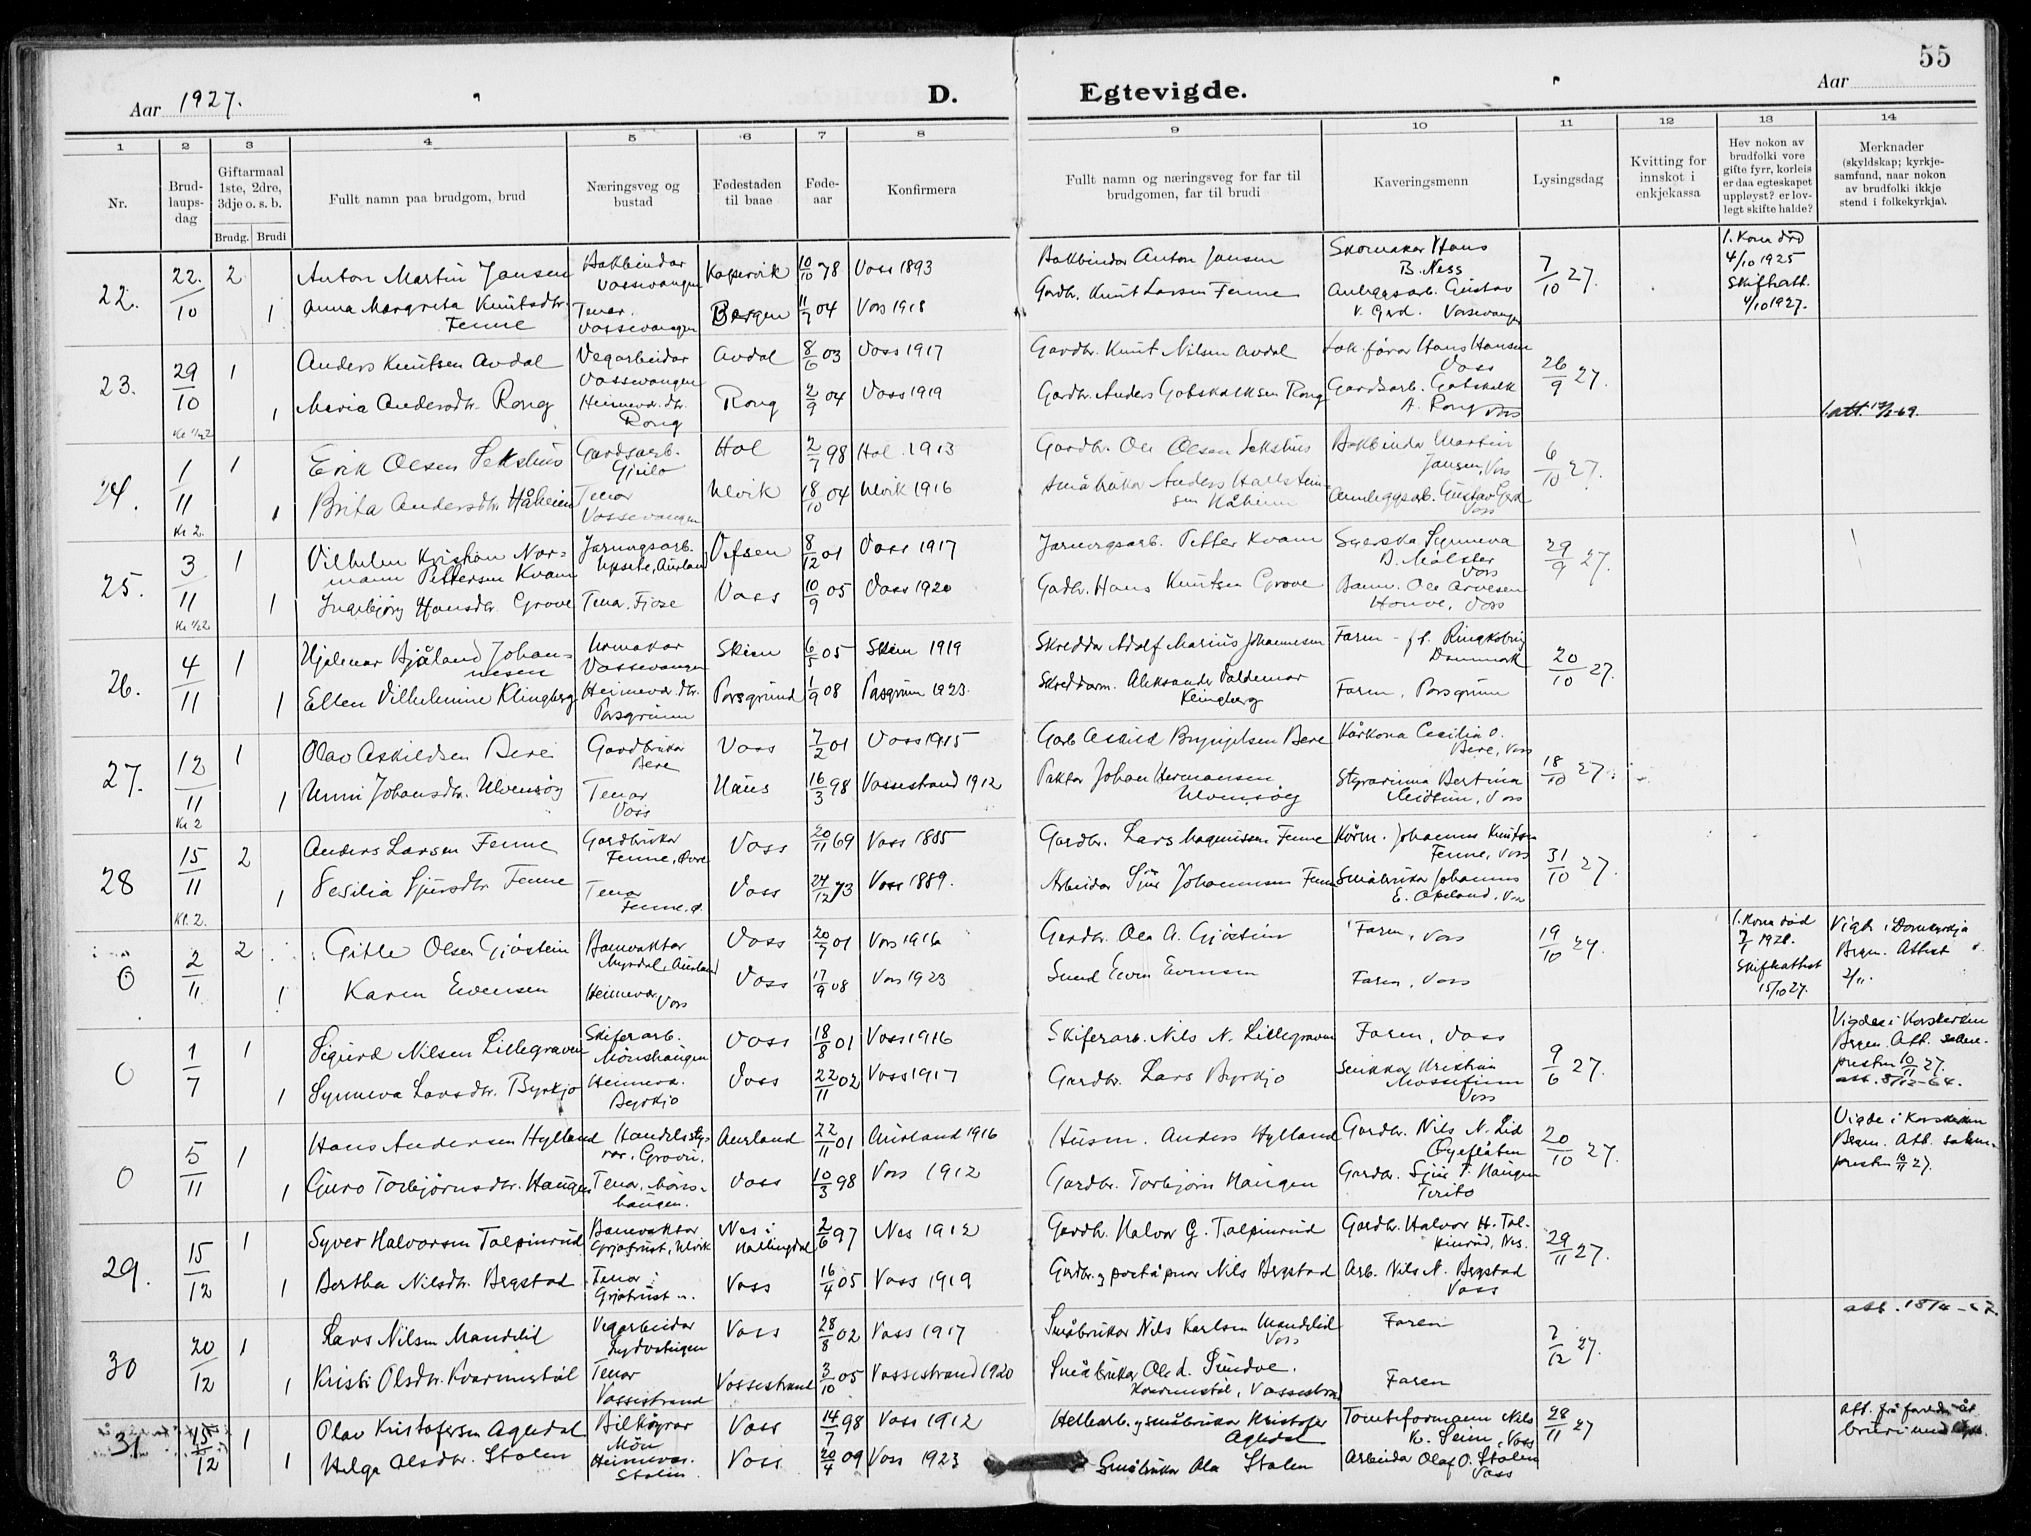 55
Aar 1927.
D. Egtevigde.
Aar
1 2 3 4 5 6 7 8 9 10 11 12 13 14
Nr.
Brud-
laups-
dag
Giftarmaal
1ste, 2dre,
3dje o. s. b.
Brudg. Brudi
Fullt namn paa brudgom, brud
Næringsveg og
bustad
Fødestaden
til baae
Føde-
aar
Konfirmera
Fullt namn og næringsveg for far til
brudgomen, far til brudi
Kaveringsmenn
Lysingsdag
Kvitting for
innskot i
enkjekassa
Hev nokon av
brudfolki vore
gifte fyrr, korleis
er daa egteskapet
uppløyst? er lov-
legt skifte halde?
Merknader
(skyldskap; kyrkje-
samfund, naar nokon
av brudfolki ikkje
stend i folkekyrkja).
22. 22./10 2 Anton Martin Jansen Bokbindar Vossevangen Kopervik 10/10 78 Voss 1893 Bokbindar Anton Jansen Skomakar Hans B. Ness 7/10 27. 1. Kona død 4/10 1925 Skifteatt. 4/10 1927.
1 Anna Margreta Knutsdtr. Fenne Tenar. Vossevangen Bergen 11/7 04 Voss 1918 Gardbr. Knut Larsen Fenne Anleggsarb. Gustav Vossevangen
23. 29/10 1 Anders Knutsen Avdal Vegarbeidar Vossevangen Avdal 8/6 03 Voss 1917 Gardbr. Knut Nilsen Avdal Hans Hansen Voss 26/9 27.
1 Maria Andersdtr. Rong Heimever. dtr. Rong Rong 2/9 04 Voss 1919 Gardbr. Anders Gotskalksen Rong Gardsarb. Gotskalk A. Rong Voss
24. 1/11 1 Erik Olsen Sekshus Gardsarb. Gjeilo Hol 2/7 98 Hol 1913 Gardbr. Ole Olsen Sekshus Bokbindar Martin Jansen, Voss 6/10 27.
Kr 2.
1 Brita Andersdtr. Håheim Tenar Vossevangen Ulvik 18/10 04 Ulvik 1916 Småbrukar Anders Hallsteinsen Håheim Anleggsarb. Gustav Voss
25. 3/11 1 Vilhelm Kristian Normann Pettersen Kvam Jarnvegsarb. Upsete, Aurland Vefsen 8/12 01 Voss 1917 Jarnvegsarb. Petter Kvam Synneva B. Mølster Voss 29/9 27.
1 Ingebjørg Hansdtr. Grove Tenar. Fjose Voss 10/9 05 Voss 1920 Gardbr. Hans Knutsen Grove Ole Arvesen Honve, Voss
26. 4/11 1 Hjalmar Bjåland Johannesen Urmakar Vossevangen Skien 6/5 05 Skien 1919 Skreddar Adolf Marius Johannesen Faren - Ringkobing Danmark 20/10 27.
1 Ellen Vilhelmine Klingberg Heimever. dtr. Porsgrunn Porsgrund 1/9 08 Porsgrunn 1923. Skreddarm. Aleksander Valdemar Klingberg Faren, Porsgrunn
27. 12/11 1 Olav Askildsen Bere Gardbrukar Bere Voss 7/2 01 Voss 1915 Gardb. Askild Brynjelsen Bere Kårkona Cecilia O. Bere, Voss 18/10 27.
Kr 2
1 Unni Johansdtr. Ulvensøy Tenar Voss Haus 16/3 98 Vossestrand 1912 Faktor Johan Hermansen Ulvensøy Styrarinna Bertina Voss
28 15/11 2 Anders Larsen Fenne Gardbrukar Fenne Voss 20/11 69 Voss 1885 Gardbr. Lars Magnussen Fenne Kårm. Johannes Knutsen Fenne, Voss 31/10 27.
Kr. 2.
1 Sesilia Sjursdtr. Fenne Tenar Fenne Voss 24/12 73 Voss 1889. Arbeidar Sjur Johannessen Fenne Småbrukar Johannes E. Voss
0 2/11 2 Gitle Olsen Gjøstein Banevaktar Myrdal, Aurland Voss 20/7 01 Voss 1916 Gardbr. Ola A. Gjøstein Faren, Voss 19/10 27. 1. Kona død Skifteattest 15/10 27. Vigde i Domkyrkja Bergen. Attest 2/11.
1 Karen Evensen Heimever Voss Voss 17/9 08 Voss 1923 Even Evensen Faren, Voss
0 1/7 1 Sigurd Nilsen Lillegraven Skiferarb. Mønshaugen Voss 18/8 01 Voss 1916 Skiferarb. Nils N. Lillegraven Faren, Voss 9/6 27. Vigde i Korskirken Bergen. Att. soknepresten 10/11 27.
1 Synneva Larsdtr. Byrkjo Heimever. Byrkjo Voss 22/11 02 Voss 1917 Gardbr. Lars Byrkjo Snikkar Kristian Voss
0 5/11 1 Hans Andersen Hylland Handelsstyrar, Groven. Aurland 22/11 01 Aurland 1916 Husm. Anders Hylland Gardbr. Nils N. Lid Øyeflåten 20/10 27. Vigde i Korskirken Bergen. Att. soknepresten 10/11 27.
1 Guro Torbjørnsdtr. Haugen Tenar, Mønshaugen. Voss 10/3 98 Voss 1912 Gardbr. Torbjørn Haugen Gardbr. Sjur T. Haugen
29. 15/12 1 Syver Halvorsen Tolpinrud Banevaktar Grjotrust, Ulvik Nes i Hallingdal 2/6 97 Nes 1912 Gardbr. Halvor G. Tolpinrud Gardbr. Halvor H. Tolpinrud, Nes. 29/11 27.
1 Bertha Nilsdtr. Bergstad Tenar Grjotrust Voss 16/4 05 Voss 1919 Nils Bergstad Arb. Nils N. Bergstad Voss
30 20/12 1 Lars Nilsen Mandelid Vegarbeidar Voss 28/8 02 Voss 1917 Småbrukar Nils Karlsen Mandelid Voss Faren 2/12 27.
1 Kristi Olsdtr. Kvarmestøl Tenar Vossestrand Vossestrand 3/10 05 Vossestrand 1920 Småbrukar Ole Sundve. Kvarmestøl, Vossestrand Faren
31. 15/12 1 Olav Kristofersen Agledal Bilkøyrar Møn Voss 14/7 98 Voss 1912 småbrukar Kristofer Agledal Nils K. Seim, Voss 28/11 27
1 Helga Olsdtr. Stalen Heimever. Stalen Voss 20/4 09 Voss 1923 Småbrukar Ola Stalen Arbeidar Olaf O. Stalen Voss